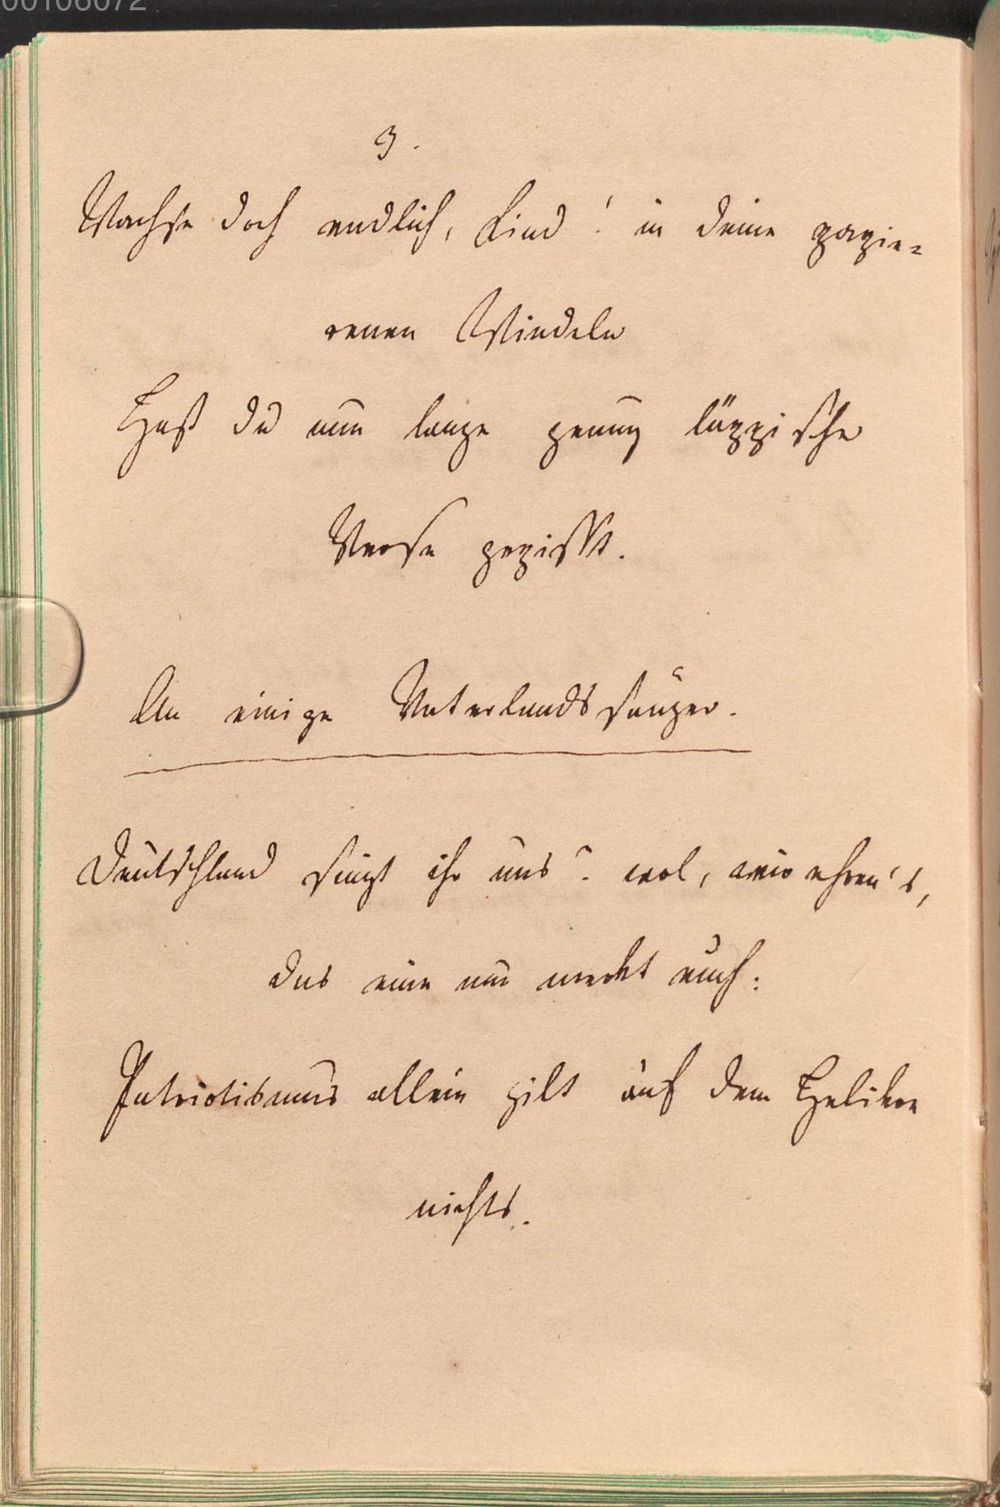 00106072
3.
Wachse doch endlich, Kind! in deine papie-
renen Windeln
Hast du nun lange genug läppische
Verse gepisst.
An einige Vaterlandssänger.
Deutschland singt ihr uns? wol, wir ehren's,
das eine nur merkt euch:
Patriotismus allein gilt auf dem Helikon
nichts.